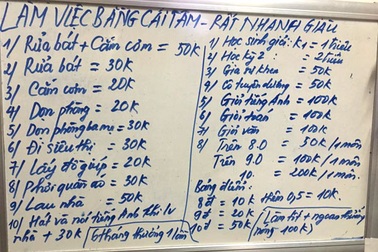 LÀM VIỆC BẰNG CÁI TÂM - RẤT NHANH GIÀU
1/ Rửa bát + Cắm cơm = 50K
2/ Rửa bát = 30K
3/ Cắm cơm = 20K
4/ Dọn phòng = 20K
5/ Dọn phòng ba mẹ = 30K
6/ Đi siêu thị = 30K
7/ Lấy đồ giúp = 20K
8/ Phơi quần áo = 30K
9/ Lau nhà = 50K
10/ Hát và nói tiếng Anh
nhà + 30K
6 tháng thưởng 1 lần
1/ Học sinh giỏi: K1 = 1 triệu
2/ Học kỳ 2: = 2 triệu
3/ = 50K
4/ Có tuyên dương = 50K
5/ Giỏi tiếng Anh = 100K
6/ Giỏi toán = 100K
7/ Giỏi văn = 100K
8/ Trên 8.0 = 50K/1 môn
Trên 9.0 = 100K/1 môn
10. = 200K/1 môn.
Bảng điểm:
8đ = 10K thêm 0,5 = 10K.
9đ = 20K
10đ = 50K
Làm tốt + ngoan thưởng
nóng 100K)